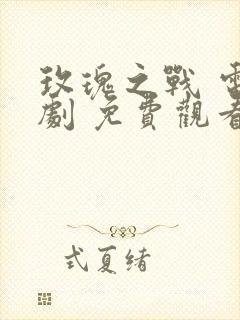 玫瑰之戰 電
劇 免費觀看
式夏緒